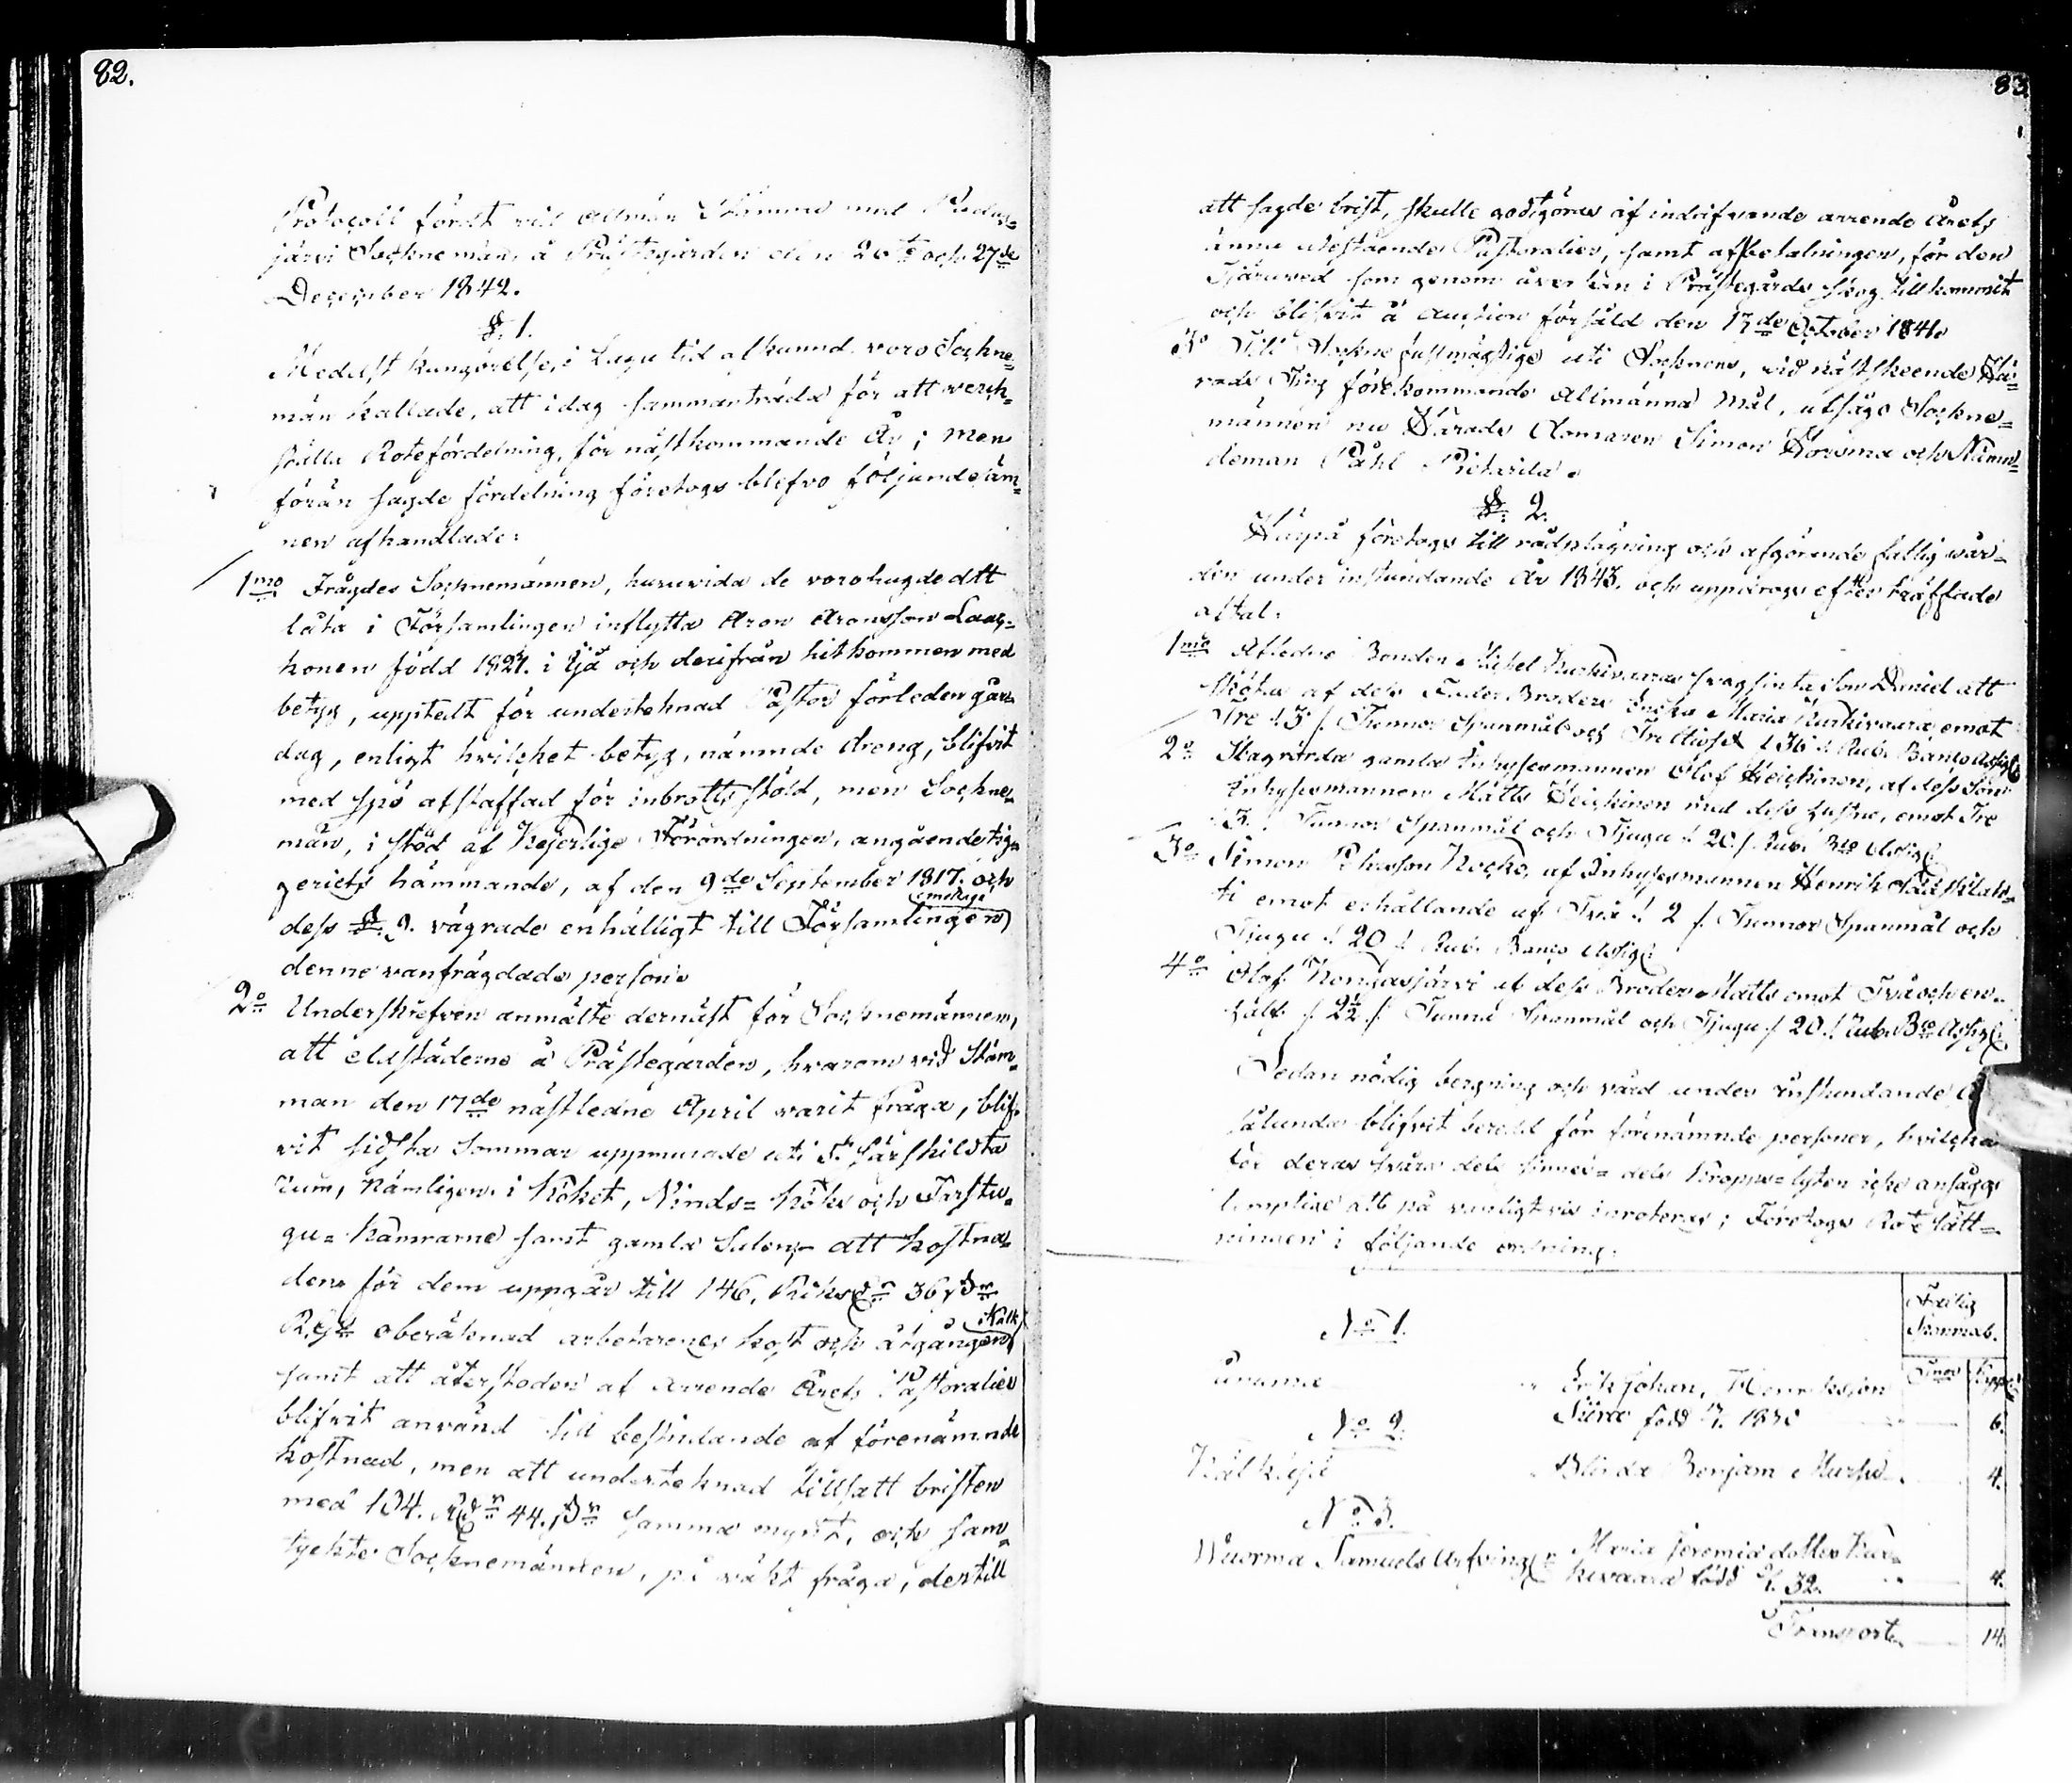 82.
Protocoll fördt vid allmän Stämma med Pudas=
järvi Sockne män, å Prästegården den 26te och 27de
December 1842.
§. 1.
Medelst kungörelse, i Laga tid afkunnd. voro Sockne=
män kallade, att idag sammanträda för att verck=
ställa Rotefördelning, för nästkommande År; Men
förän sagde fördelning företogs blefvo följande äm=
nen afhandlade:
1mo Frågdes Socknemännen, huruvida de voro hugde att
låta i Församlingen inflytta Aron Aronsson
honen född 1821. i Ijå och derifrån hitkommen med
betyg, uppteedt för undertecknad Pastor förleden går
dag, enligt hvilcket betyg, nämnde dreng, blifvit
med spö afstraffad för inbrotts stöld, men Sockne=
män, i stöd af Kejserliga Förordningen, angående tig=
geriets hämmande, af den 9de September 1817. och
dess §. 9. vägrade enhälligt till Församlingen emottaga
denne vanfrägdade person.
2o Underskrefven anmälte dernäst för Socknemännen,
att eldstäderne å Prästegården, hvarom vid Stäm=
man den 17de nästledne April varit fråga, blif=
vit sidsta Sommar uppmurade uti 5. särskildta
rum, nämligen i Köket, Vinds= köks och Farstu=
gu= kamrarne samt gamla Salen,- att kostna=
den för dem uppgår till 146. Riksdr 36 
Rgs oberäknad arbetarenes kost och åtgången Kalk
samt att återstoden af Arrende Årets Pastoralier
blifvit använd till bestridande af förenämnde
kostnad, men att undertecknad tillsatt bristen
med 134. Rdr 44. samma mynt, och sam=
tyckte Socknemännen, på väckt fråga, dertill
83
att sagde brist, skulle godtgöras af indrifvande arrende Årets
ännu utestående Pastoralier, samt afbetalningen, för den
Tjäruved som genom åverkan i Prästegårds skog tillkommit
och blifvit å auction försåld den 17de October 1841.
3o Till Sockne fullmägtige uti Socknens, vid nästskeende Hä=
rads Ting förekommande Allmänna Mål, utsågo Sockne=
männen nu Härads domaren Simon och Nämn=
deman Påhl Pietarila.
§. 2.
Härpå företogs till rådplägning och afgörande fattig vår=
den under instundande År 1843. och uppdrogs efter träffade
aftal:
1mo Afledne Bonden Michel Kurkivaaras svagsinta son Daniel att
skötas af dess Fader Broders Encka Maria Kurkivaara, emot
Tre /: 3 :/ Tunnor Spanmål och Trettiosex /: 36 :/ Rub. Banco Assign:
2o gamla Inhysesmannen Olof Heickinen, af dess Son
Inhysesmannen Matts Heickinen med dess hustru, emot Tre
/: 3. :/ Tunnor Spanmål och Tjugu /: 20 :/ Rub. Bco Assign:
3o Simon af Inhysesmannen Henrik
ti emot erhållande af Två /: 2 :/ Tunnor Spanmål och
Tjugu /: 20 :/ Rub. Banco Assign:
4o Olof Kongasjärvi af dess Broder Matts emot Två och en
half /: 2½ :/ Tunna Spanmål och Tjugu /: 20 :/ Rub. Bco Assign:
Sedan nödig bergning och vård under instundande
sålunda blifvit beredd för förenämnde personer, hvilcka
för deras svåra dels sinnes= dels kropps=lyten icke ansågs
lämplige att på vanligt vis inroteras; Företogs Rotesätt=
ningen i följande ordning:
Fattig
Spanmål.
Tnor Kappar
No 1.
Erik Johan, Henriksson
född 1830 6.
No 2.
Blinda Benjam 4.
No 3.
Wuorma Samuels Arfvingar Maria Jeremiædotter Kur=
kivaara född 32. 4.
Transport 14.